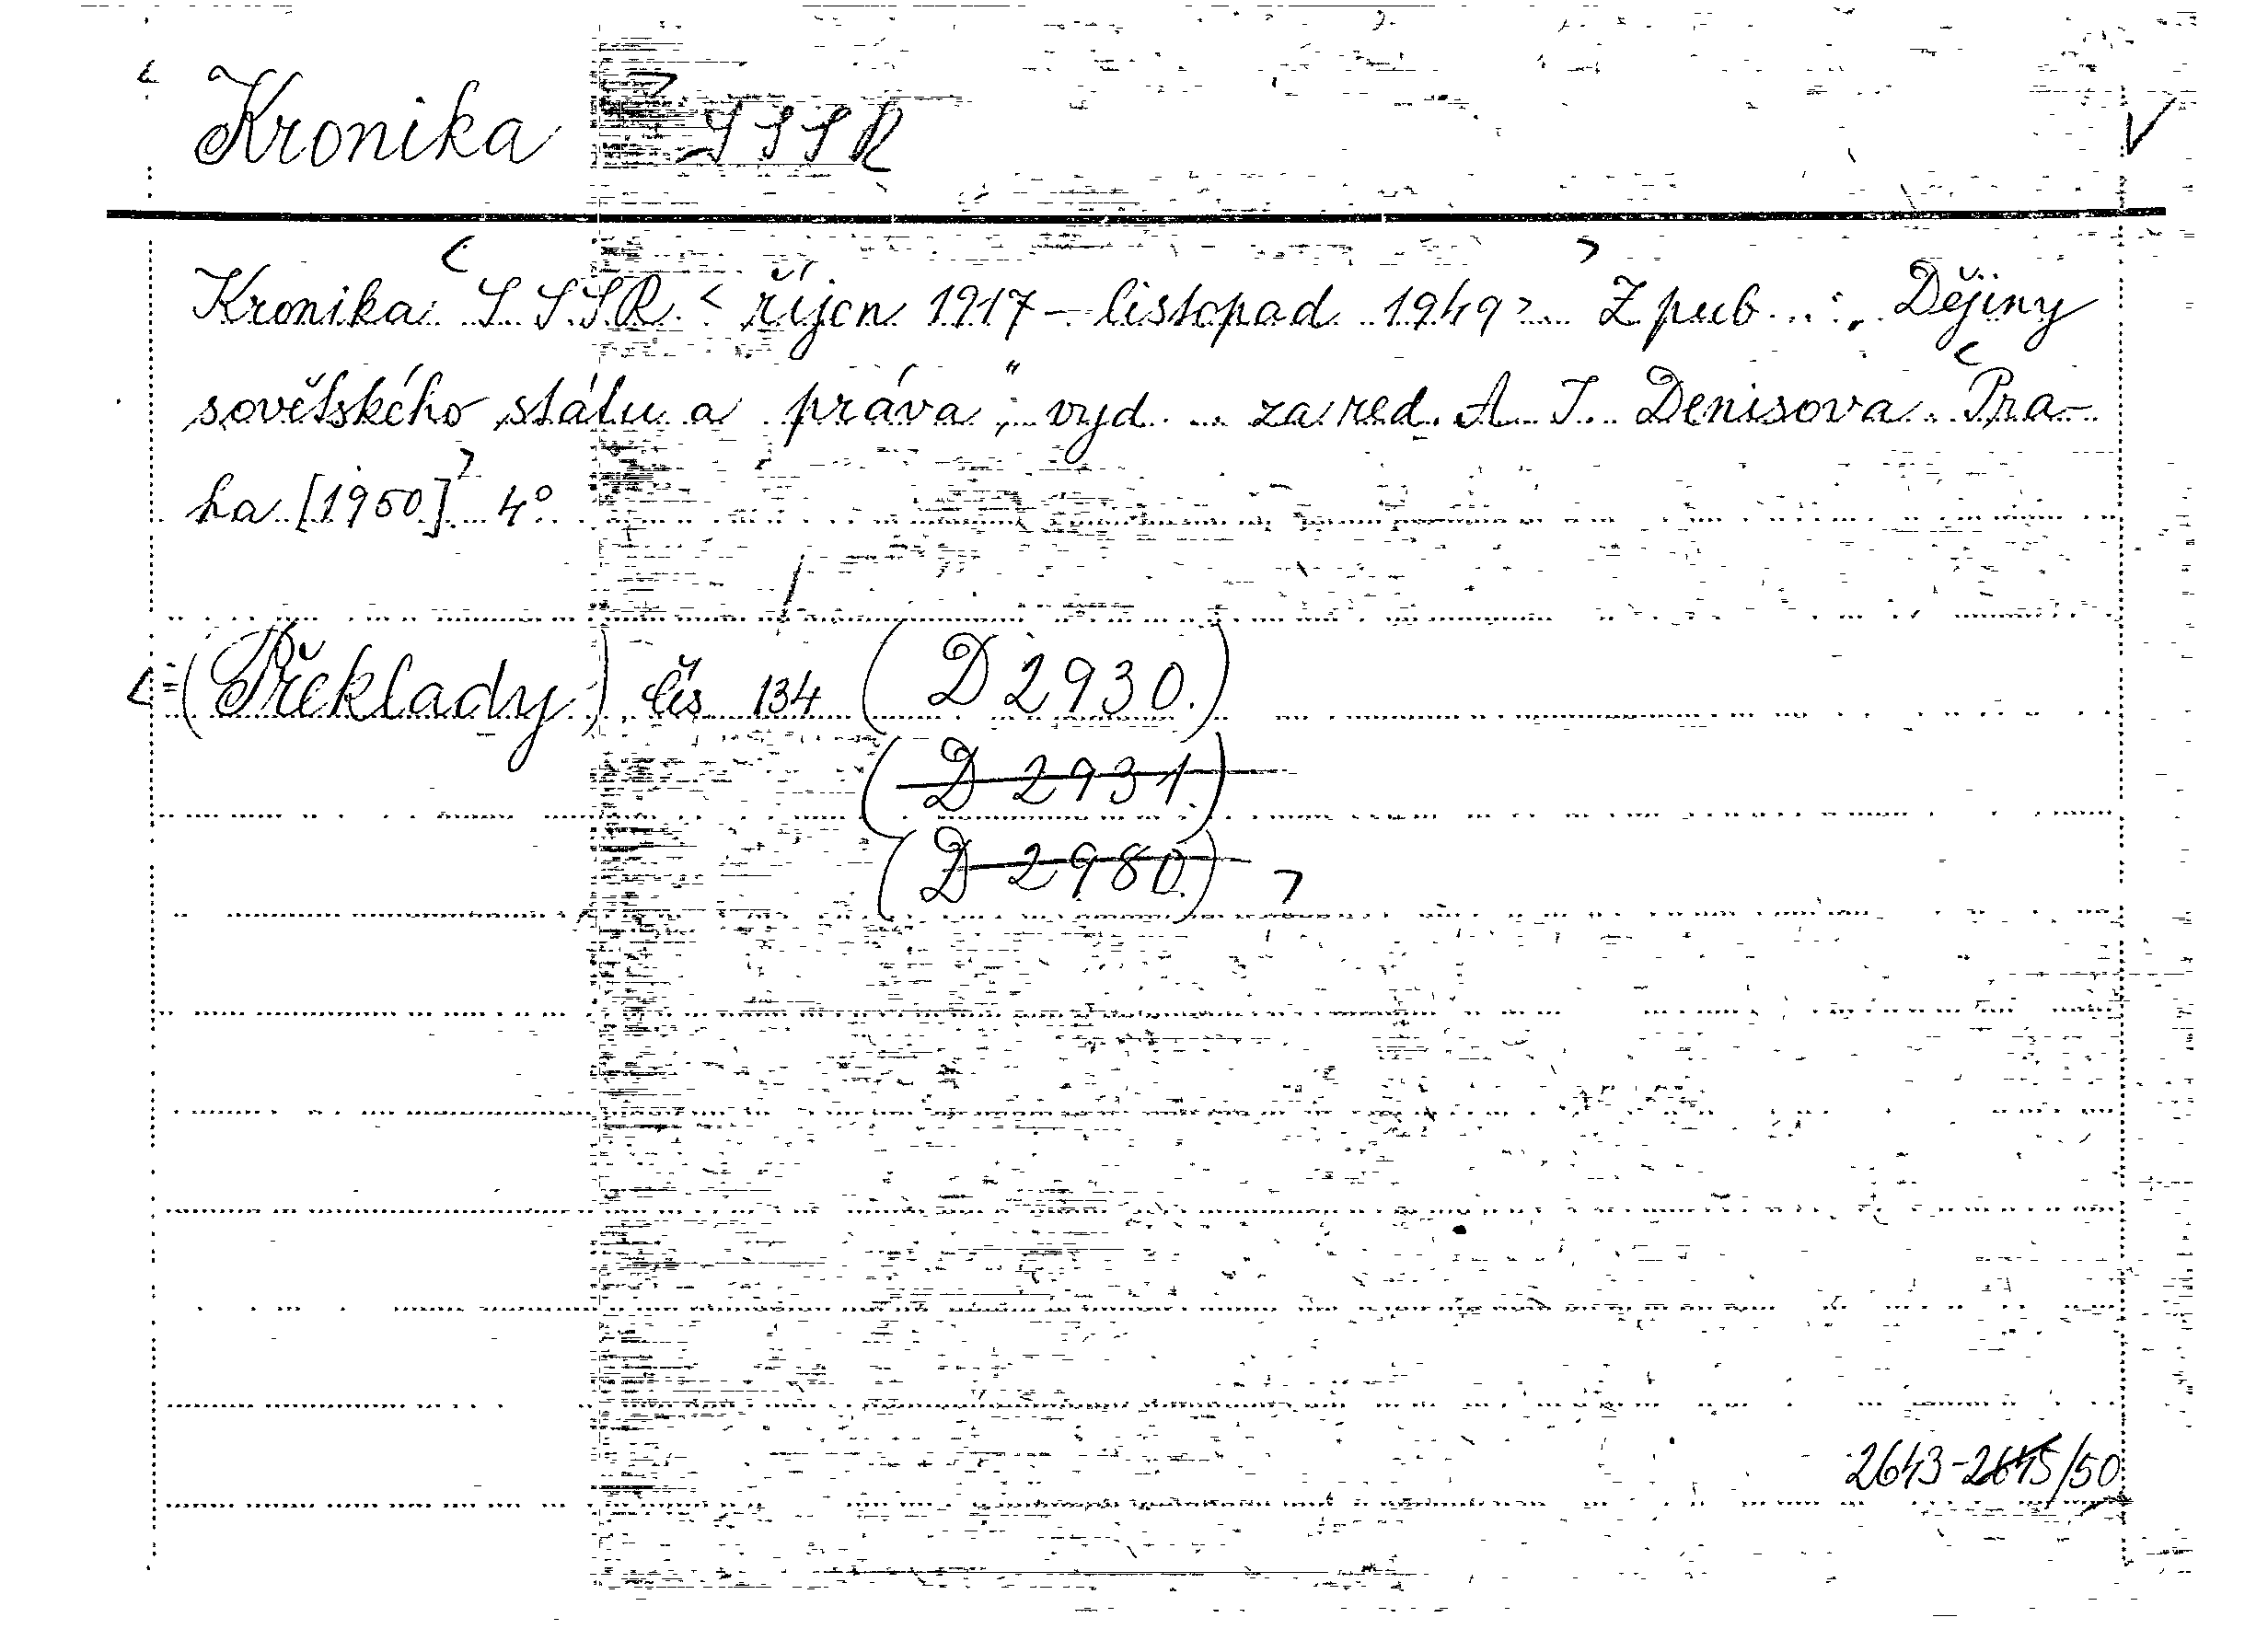 Kronika SSSR
Kronika SSSR < říjen 1917 – listopad 1949 > Z pub. .: „Dějiny
sovětského státu a práva“, vyd. ... za red. A I. Denisova. Pra-
ha [1950]. 4°
= (Překlady) čís 134 (D 2930.)
(D 2931.)
(D 2980.)
2643-2645/50